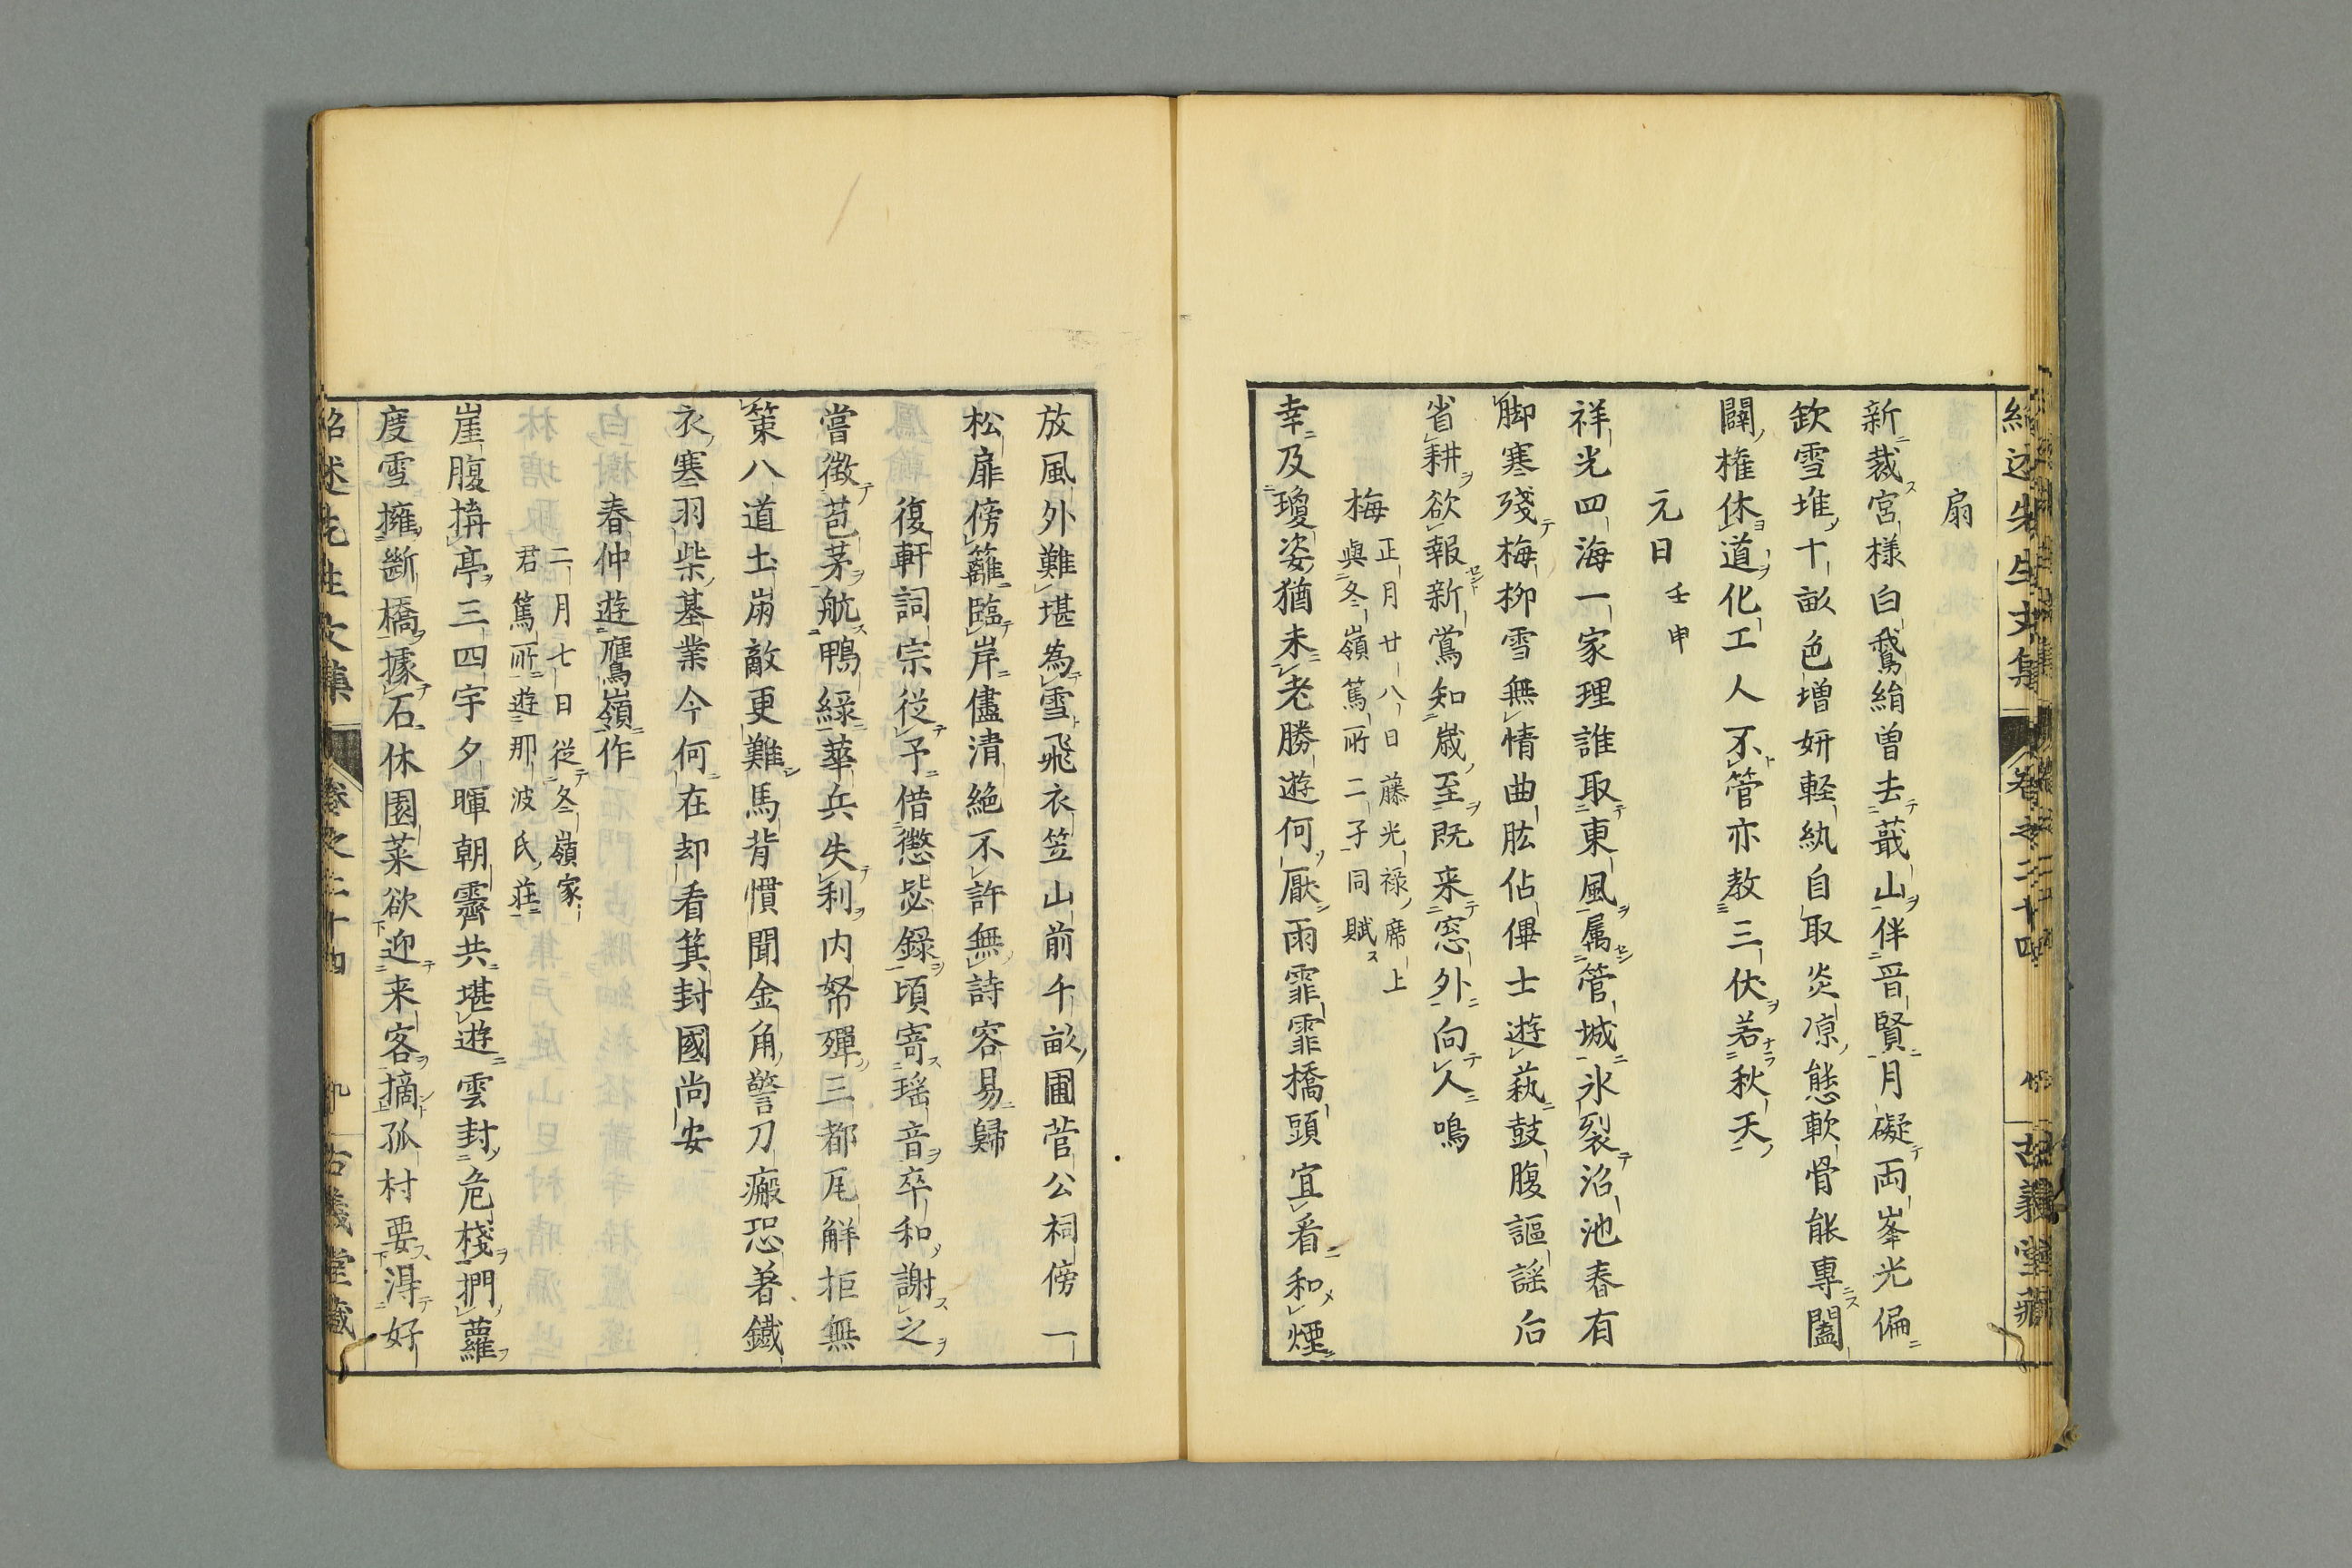 扇
新裁宮様白鵞絹曽去蕺山伴晋賢月礙両峯光偏
欽雪堆十畝色増妍軽紈自取炎凉態軟骨能專闔
闢権休道化工人不管亦教三伏若秋天
元日 壬申
祥光四海一家理誰取東風属管城氷裂沼池春有
脚寒殘梅柳雪無情曲肱佔俾士遊萟鼓腹謳謡后
省耕欲報新鴬知歳至既来窓外向人鳴
梅 正月廿八日藤光禄席上
與冬嶺篤所二子同賦
幸及瓊姿猶未老勝遊何厭雨霏霏橋頭宜看和煙
放風外難堪為雪飛衣笠山前千畝圃菅公祠傍一
松扉傍籬臨岸儘清絶不許無詩容易歸
復軒詞宗従予借懲毖録頃寄瑶音卒和謝之
嘗徴苞茅航鴨緑華兵失利内帑殫三都瓦解拒無
策八道土崩敵更難馬背慣聞金角警刀瘢恐著鐵
衣寒羽柴基業今何在却看箕封國尚安
春仲遊鴈嶺作
二月七日従冬嶺家
君篤所遊那波氏荘
崖腹搆亭三四宇夕暉朝霽共堪遊雲封危棧捫蘿
度雪擁断橋據石休園菜欲迎来客摘孤村要淂好
紹述先生文集 卷之二十四 九 古義堂藏